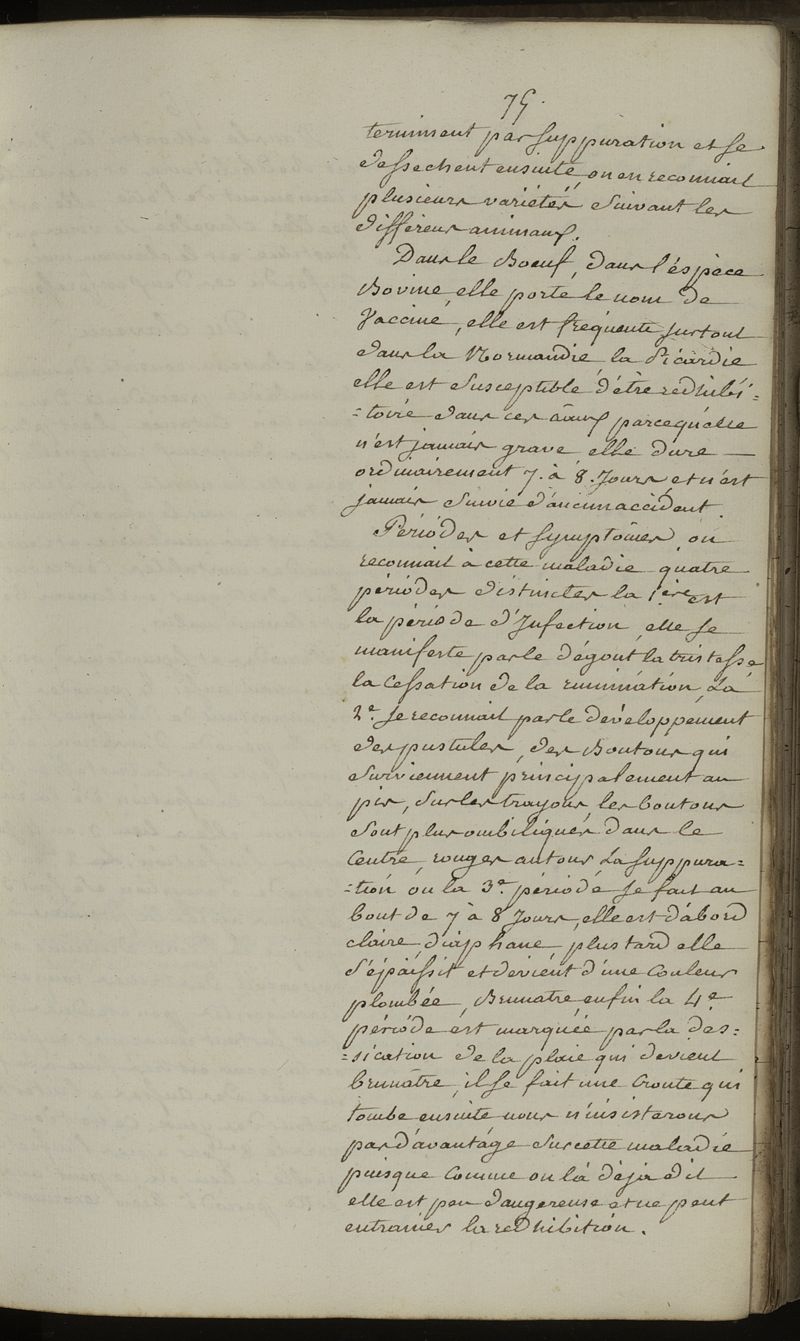 75.
terminent par suppuration et se
dessechent ensuite, on en reconnait
plusieurs variétés suivant les
différens animaux.
Dans le Boeuf, dans l'éspèce
Bovine, elle porte le nom de
Vaccine, elle est fréquente surtout
dans la Normandie, la Picardie
elle est susceptible d'être redhibi=
=toire dans ces aaux parcequ'elle
n'est jamais grave elle dure —
ordinairement 7. à 8. Jours, et n'est
jamais suivie d'aucun accident.
Périodes et symptômes, on
reconnait à cette maladie quatre
périodes distinctes la 1ère est
la période d'Infection, elle se
manifeste par le dégout la tristesse
la cessation de la rumination, La
2e. se reconnait par le développement
des pustules, des Boutons qui
surviennent principalement au
pis, sur les trayons, les boutons
sont plus ombiliqués dans le
Centre, rouges autour La suppura=
=tion ou la 3e. période se fait au
bout de 7 à 8 Jours, elle est d'abord
claire, diaphane, plus tard elle
s'épaissit et devient d'une couleur
plombée, Brunatre enfin la 4e
période est marquée par la des=
=sication de la plaie qui devient
brunâtre, il se fait une Croute qui
tombe ensuite nous n'insisterons
pas d'avantage sur cette maladie
puisque comme on l'à déjà dit
elle est peu dangereuse et ne peut
entrainer la redhibition.